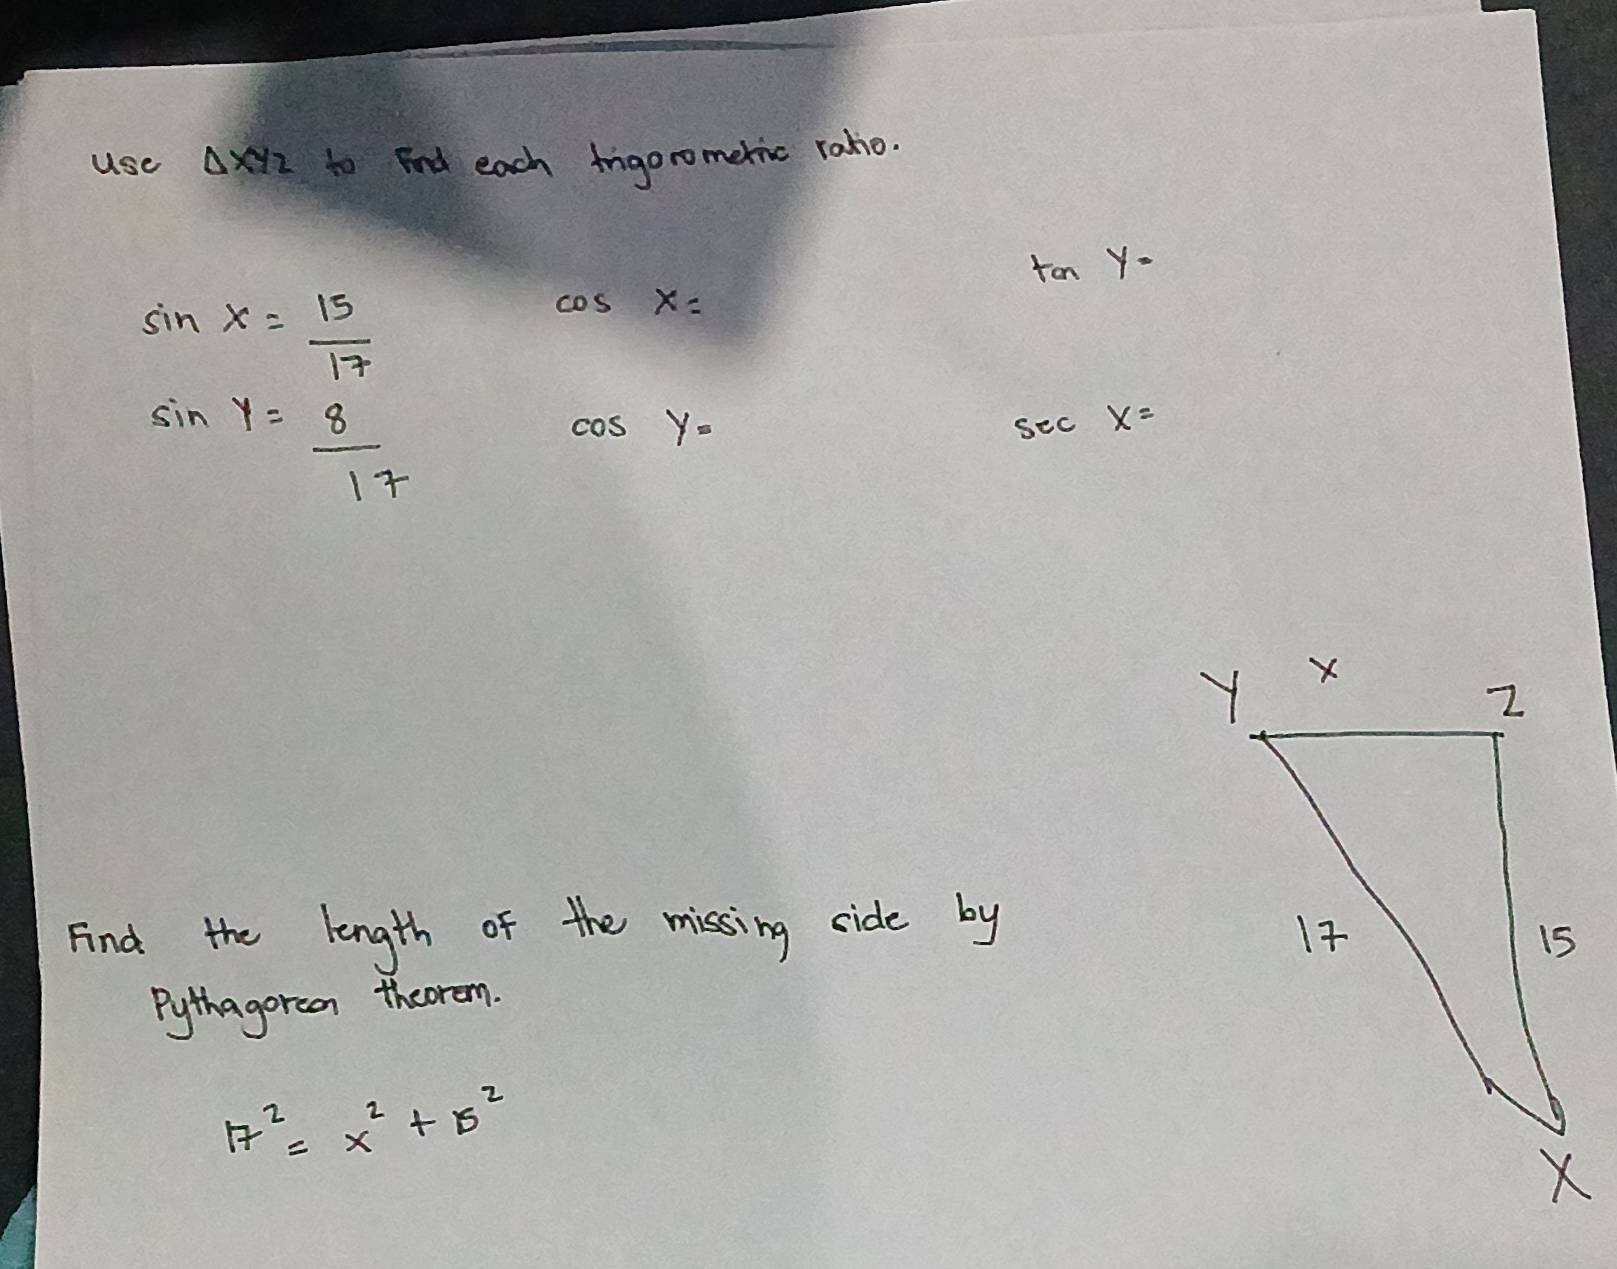 Use ΔXYZ to find each trigonometric ratio.
sin X = 15/17
cos X =
tan Y =
sin Y = 8/17
cos Y =
sec X =
Y x Z
17 15
X
Find the length of the missing side by
Pythagorean theorem.
17² = x² + 15²